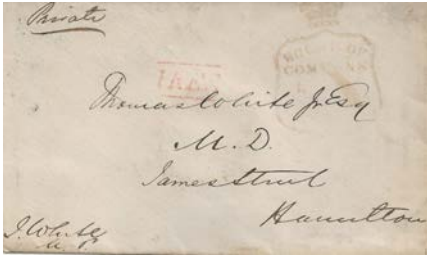 Private
HOUSE OF
COMMONS
Thomas White Jr Esq
M. D.
James Street
Hamilton
J. White